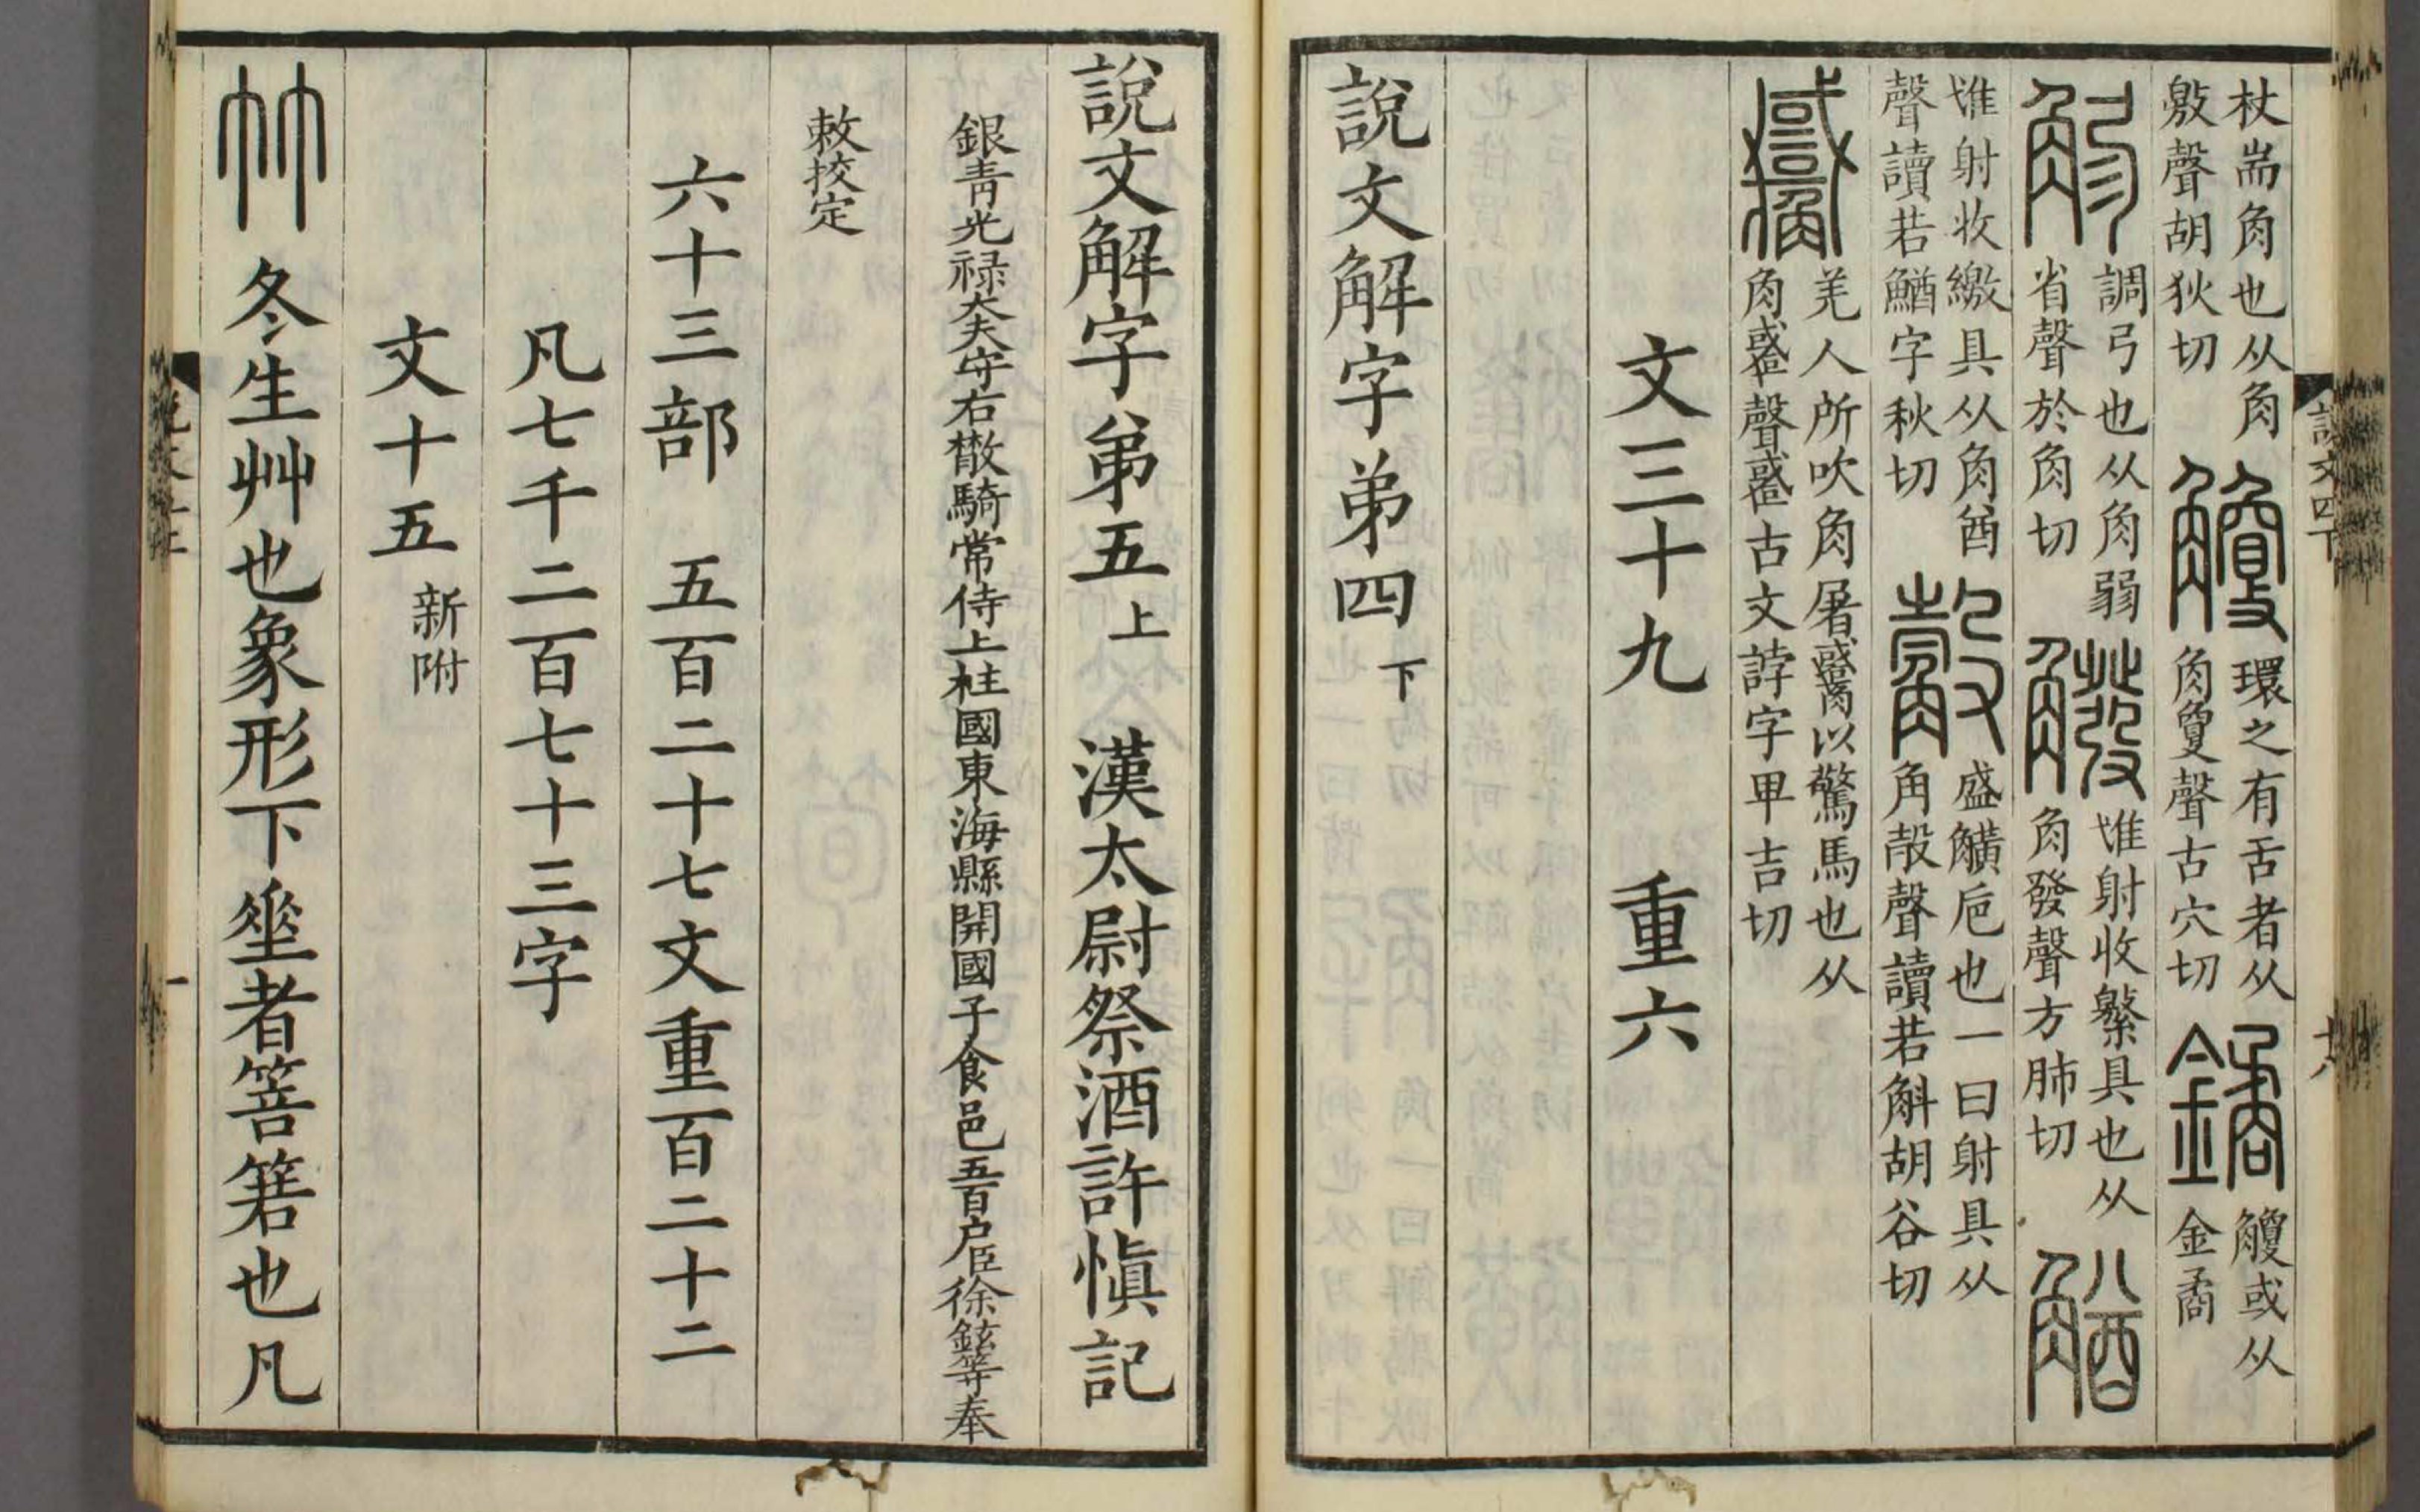 杖耑角也从角
敫聲胡狄切
觼環之有舌者从
角敻聲古穴切
鐍觼或从
金矞
調弓也从角弱
省聲於角切
隿射收繁具也从
角發聲方肺切
隿射收繳具从角酋
聲讀若鰌字秋切
盛觵卮也一曰射具从
角㱿聲讀若斛胡谷切
羌人所吹角屠觱以驚馬也从
角聲古文誖字畢吉切
文三十九 重六
說文解字弟四下
說文解字弟五上 漢太尉祭酒許愼記
銀青光禄大夫守右散騎常侍上柱國東海縣開國子食邑五百户臣徐鉉等奉
敕挍定
六十三部 五百二十七文重百二十二
凡七千二百七十三字
文十五新附
竹冬生艸也象形下垂者箁箬也凡